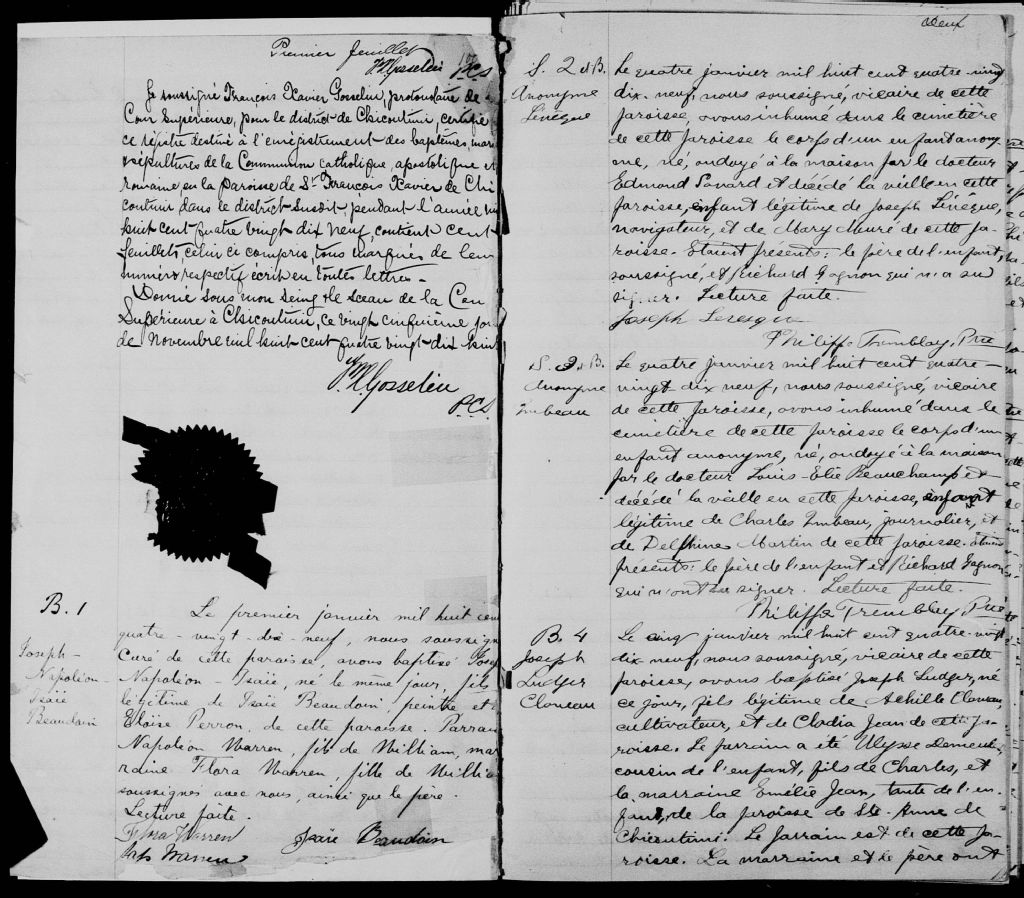 Premier feuillet
F X Gosselin
P.C.S
Je soussigné François Xavier Gosselin, protonotaire de
Cour Supérieure, pour le district de Chicoutimi, certifie
ce régistre destiné à l'enrégistrement des baptêmes, mar
sépultures de la Communion catholique, apostolique et
romaine en la paroisse de St François Xavier de Chi
coutimi dans le district susdit, pendant l'année mil
huit cent quatre vingt dix neuf, contient cent
feuillets, celui ci compris, tous marqués de leur
numéro respectif écrit en toutes lettres.
Donné sous mon seing & le sceau de la Cour
Supérieure à Chicoutimi, ce vingt cinquième jour
de Novembre mil huit cent quatre vingt dix huit
F X Gosselin
P.C.S.
B. 1
Joseph-
Napoléon-
Isaïe
Beaudoin
Le premier janvier mil huit cent
quatre-vingt-dix-neuf, nous soussigné
Curé de cette paroisse, avons baptisé Josep
Napoléon-Isaïe, né le même jour, fils
légitime de Isaïe Beaudoin, peintre et
Eloïse Perron, de cette paroisse. Parrain
Napoléon Warren, fils de William, mar
raine Flora Warren, fille de Willia
soussignés avec nous, ainsi que le père.
Lecture faite.
Flora Warren
Isaïe Beaudoin
Warren
Deux
S. 2 d B.
Anonyme
Lévêque
Le quatre janvier mil huit cent quatre-vingt
dix-neuf, nous soussigné, vicaire de cette
paroisse, avons inhumé dans le cimetière
de cette paroisse le corps d'un enfant anony
me, né, ondoyé à la maison par le docteur
Edmond Savard et décédé la veille en cette
paroisse, enfant légitime de Joseph Lévêque,
navigateur, et de Mary Meuré de cette pa-
roisse. Etaient présents: le père de l'enfant,
soussigné, et Richard Gagnon qui n'a su
signer. Lecture faite.
Joseph Levesque
Philippe Tremblay, Ptre
S. 3 d B.
Anonyme
Imbeau
Le quatre janvier mil huit cent quatre-
vingt dix neuf, nous soussigné, vicaire
de cette paroisse, avons inhumé dans le
cimetière de cette paroisse le corps d'un
enfant anonyme, né, ondoyé à la maison
par le docteur Louis-Elie Beauchamp et
décédé la veille en cette paroisse, enfant
légitime de Charles Imbeau, journalier, et
de Delphine Martin de cette paroisse. Etaient
présents: le père de l'enfant et Richard Gagnon
qui n'ont su signer. Lecture faite.
Philippe Tremblay Ptre
B. 4
Joseph
Ludger
Claveau
Le cinq janvier mil huit cent quatre-vingt
dix neuf, nous soussigné, vicaire de cette
paroisse, avons baptisé Joseph Ludger, né
ce jour, fils légitime de Achille Claveau,
cultivateur, et de Clodia Jean de cette pa-
roisse. Le parrain a été Ulysse Demeules,
cousin de l'enfant, fils de Charles, et
la marraine Emélie Jean, tante de l'en-
fant, de la paroisse de Ste-Anne de
Chicoutimi. Le parrain est de cette pa-
roisse. La marraine et le père ont